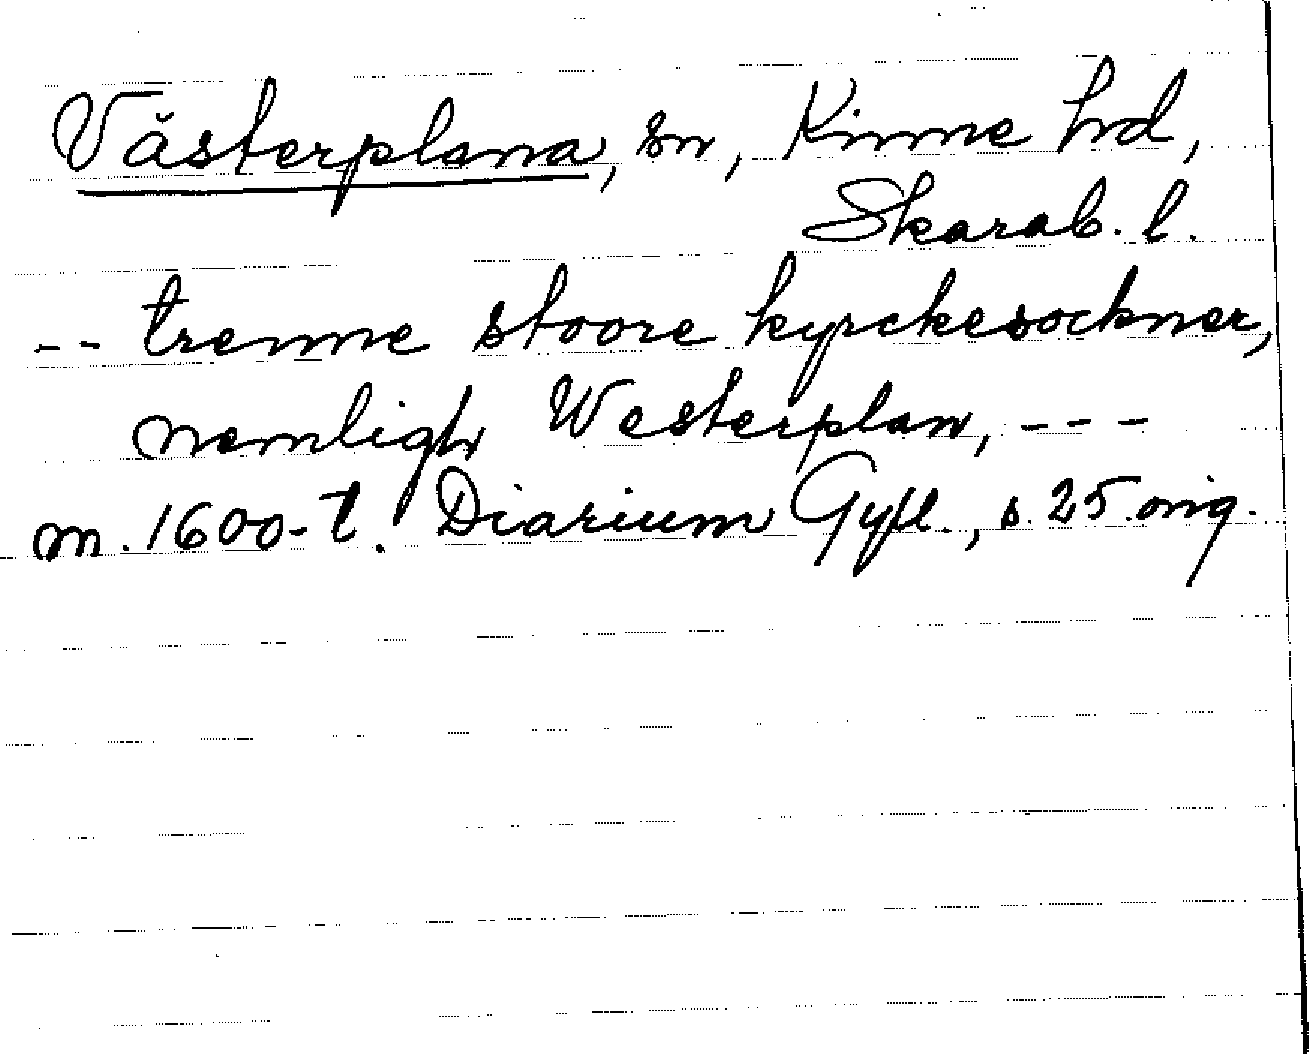 Västerplana, sn, Kinne hd,
Skarab. l.
-- trenne stoore kyrckesockner,
nemligh Westerplan, ---
m. 1600-t. Diarium Gyll., s. 25 orig.